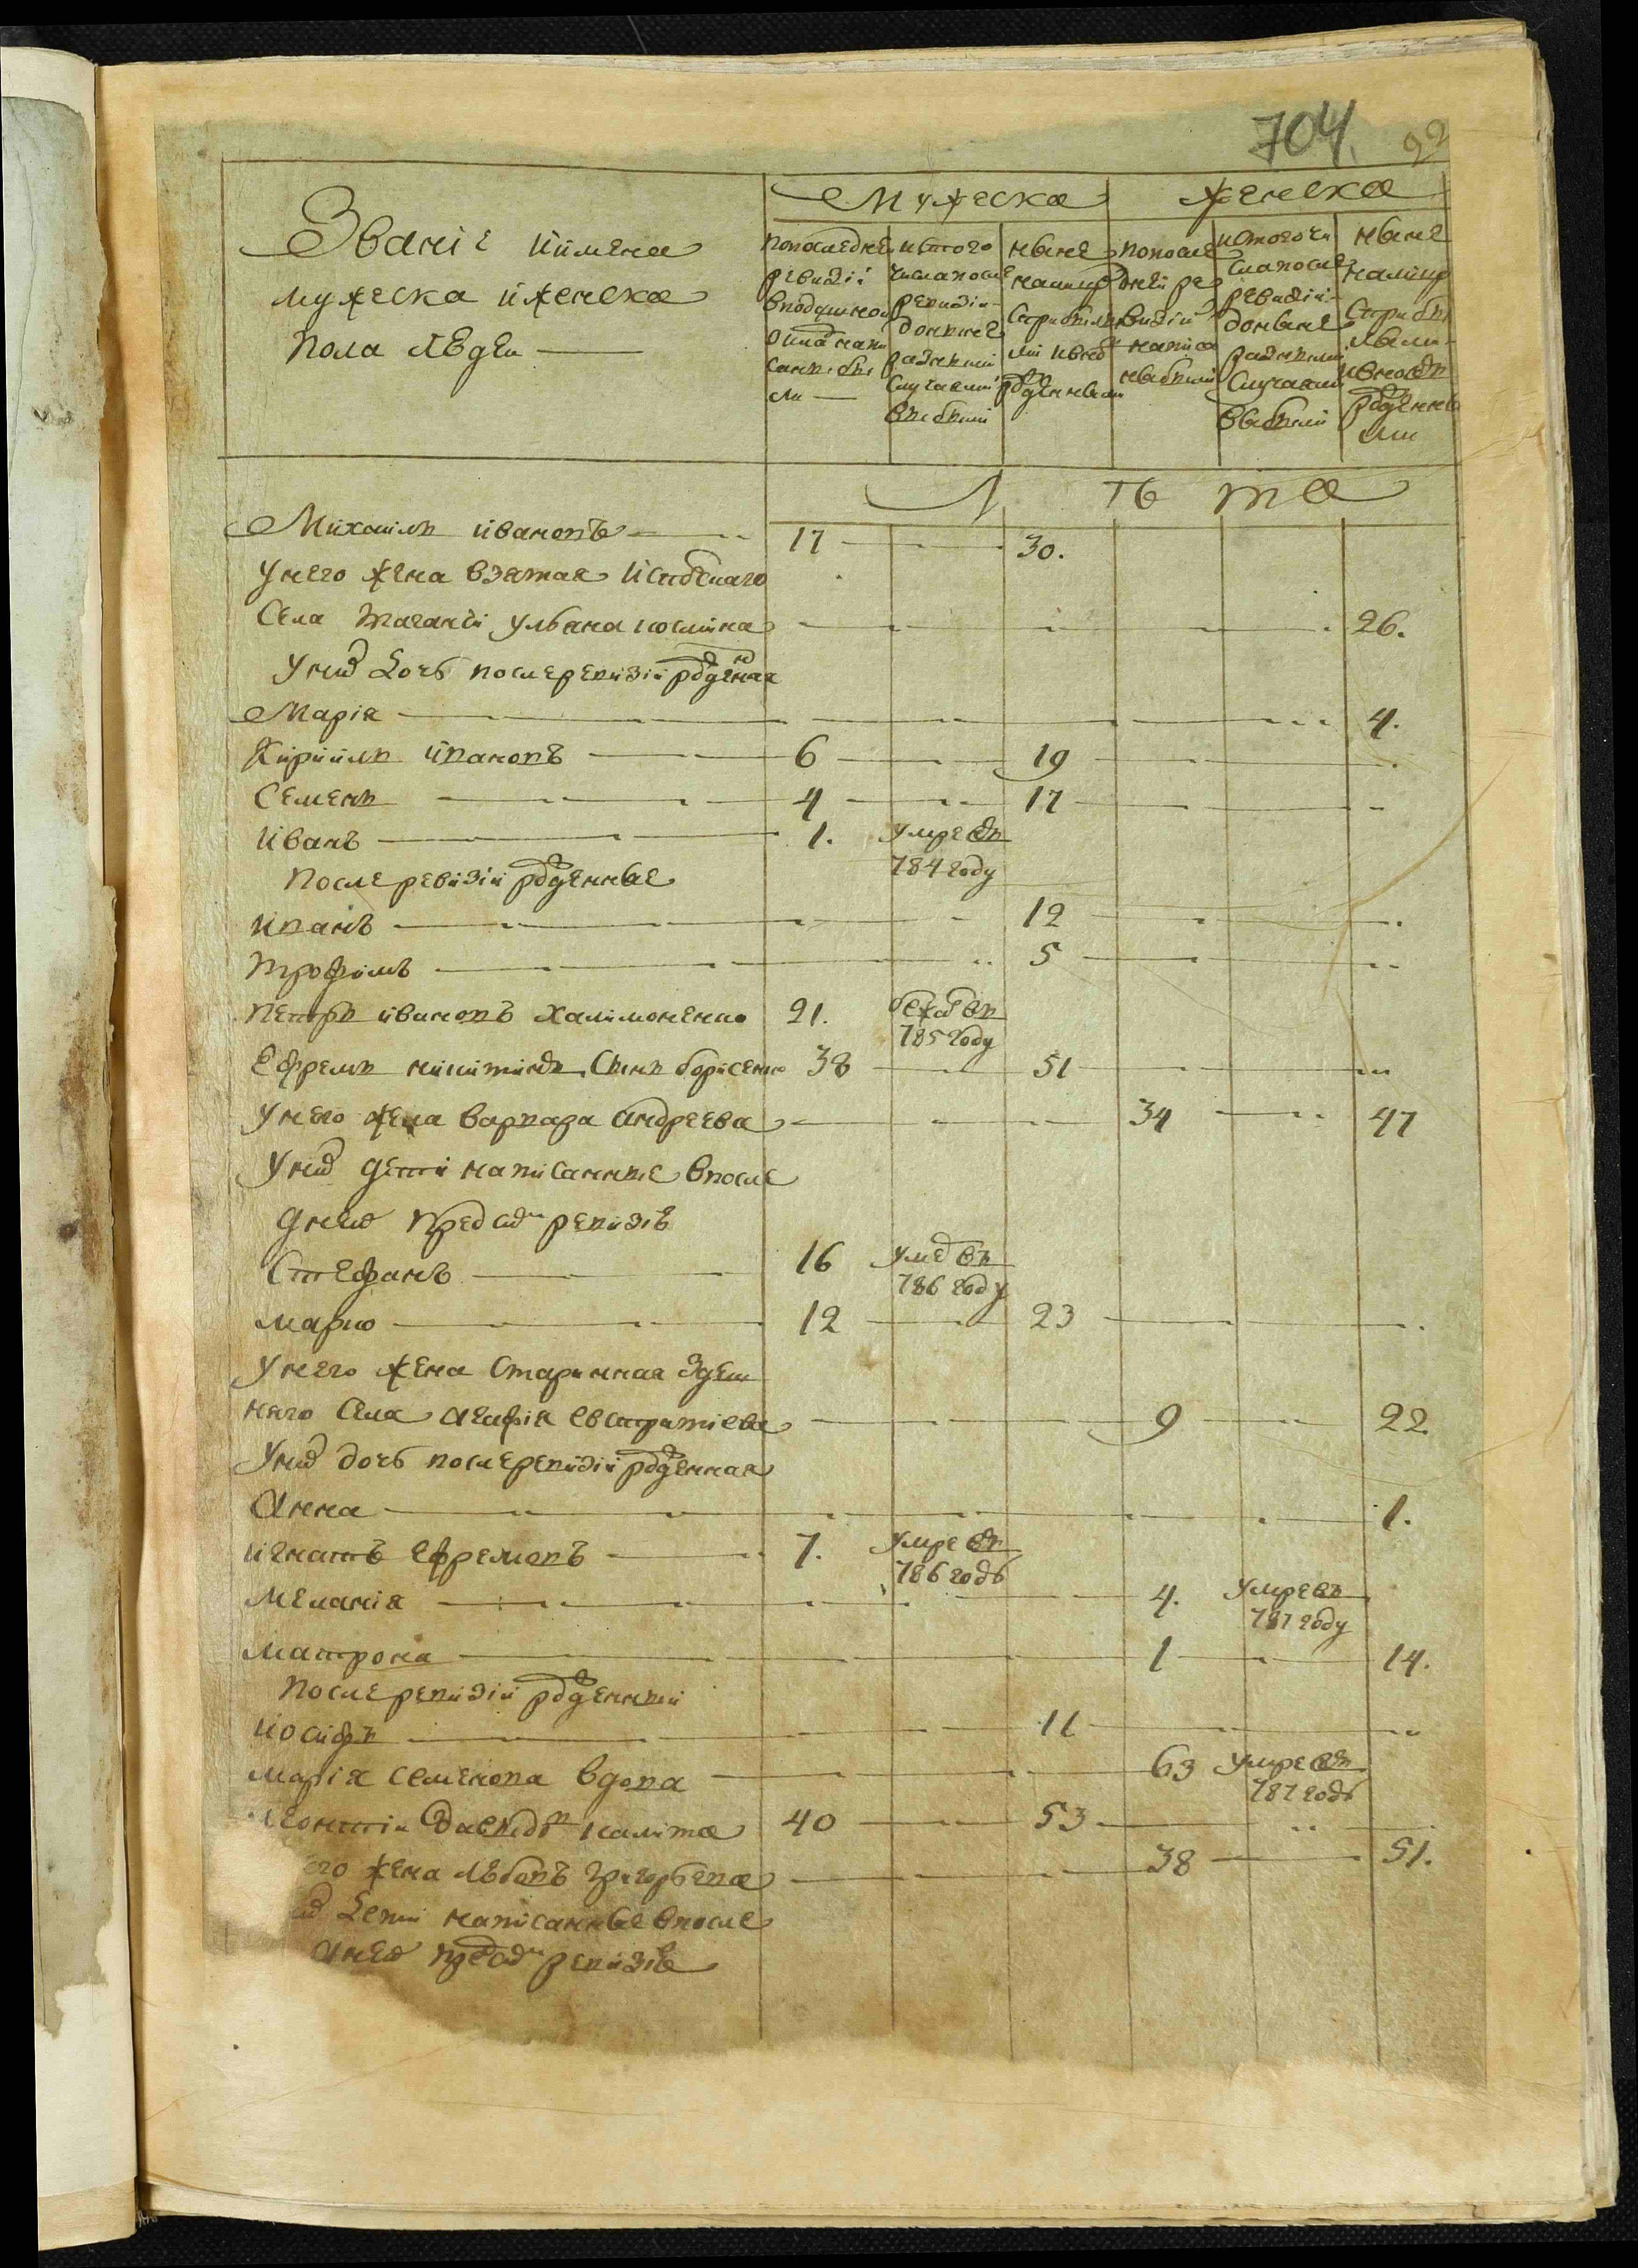 704. 92
Званіе и имена
мужеска и женска
пола людеи
Мужеска
Женска
по последнеи
ревизіи
в подушном
окладе напи
саны бы
ли
и с того
числа после
ревизіи
до ныне
разными
случаями
выбыли
ныне
на лицо
с прибылы
ми и внов
рожденными
по после
днеи ре
визіи
написа
ны были
и с того чи
сла после
ревизіи
до ныне
разными
случаями
выбыли
ныне
на лицо
с прибы
лыми
и вновь
рожденны
ми
Л ѣ т а
Михаилъ ивановъ 17 30.
у него жена взятая
села Таганчи Ульяна космина 26.
у них дочь после ревизіи рожденая
Марія 4.
Кирилъ ивановъ 6 19
Семенъ 4 17
иванъ 1. умре въ
784 году
после ревизіи рожденные
иванъ 12
трофимъ 5
петръ ивановъ халимоненко 21. бежавъ
785 году
Ефремъ никитинъ сынъ борисенко 38 51
у него жена варвара андреева 34 47
у них дети написанные в после
днеи пред сим ревизіе
Стефанъ 16 умре въ
786 году
марко 12 23
у него жена старинная здеш
няго села агафія евстратіева 9 22.
у них дочь после ревизіи рожденная
Анна 1.
игнатъ ефремовъ 7. умре въ
786 годѣ
меланія 4. умре въ
787 году
матрона 1 14.
после ревизіи рожденныи
иосифъ 11
марія семенова вдова 63 умре въ
787 годѣ
леонтіи давыдовъ калита 40 53
его жена любовь григорьева 38 51.
дети написанные в после
днеи пред сим ревизіе